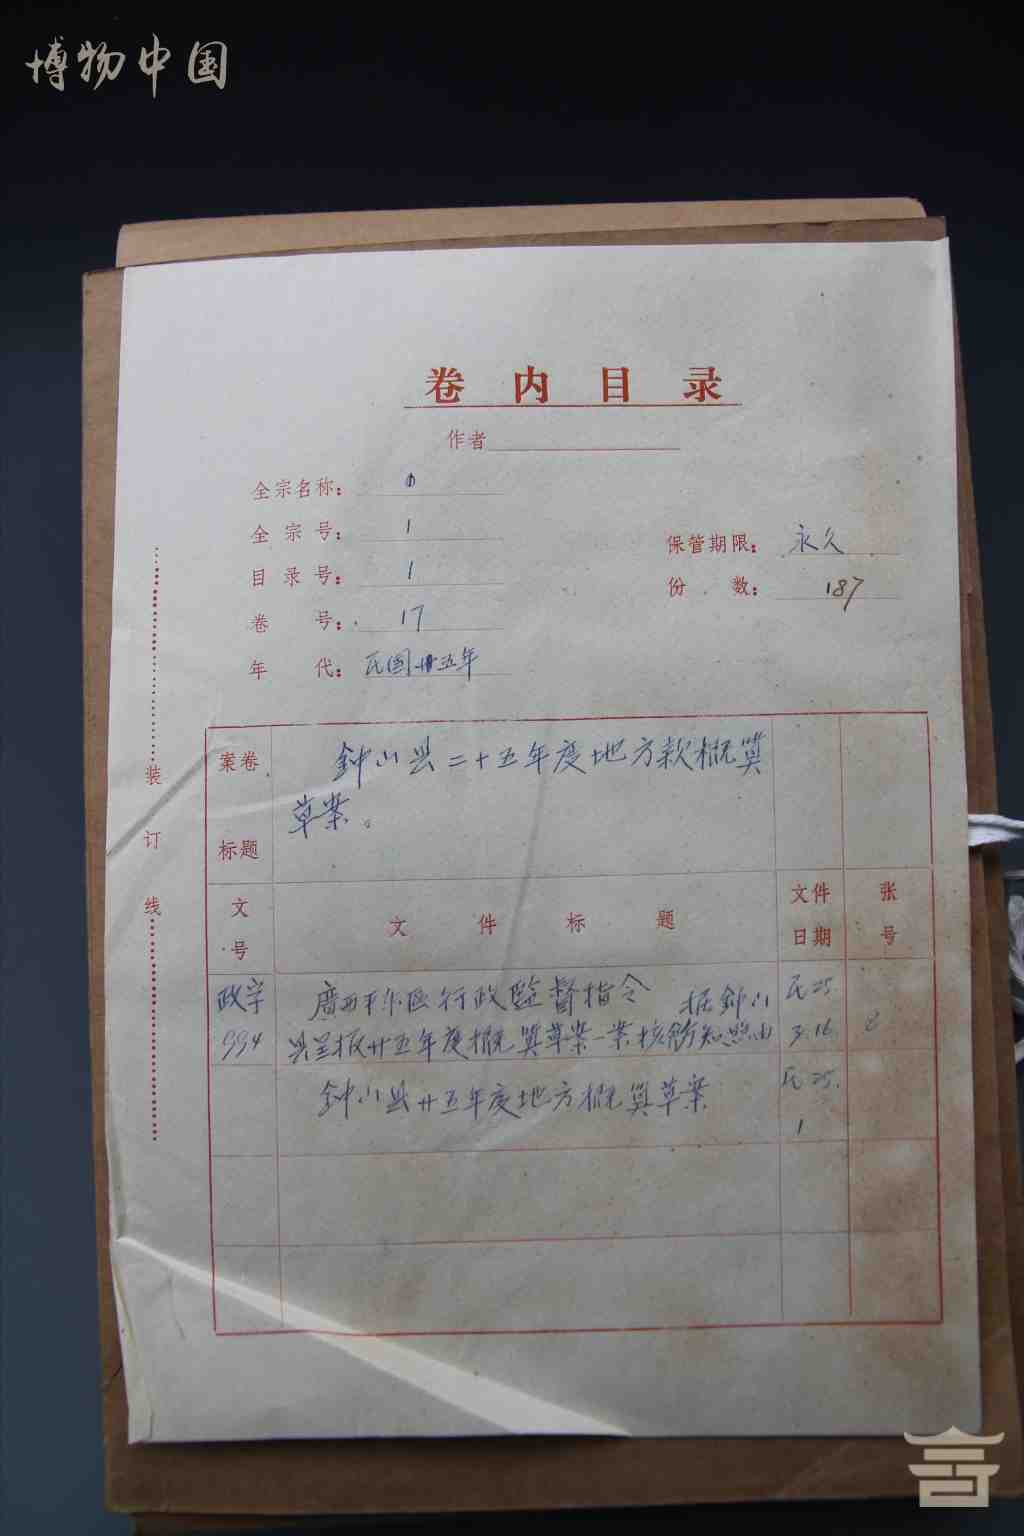 博物中国
卷内目录
作者
全宗名称：
全宗号：1
保管期限：永久
目录号：1
份数：187
卷号：17
年代：民国廿五年
案卷标题
鈡山县二十五年度地方款概算
草案。
文号
文件标题
文件日期
张号
政字 廣西平乐区行政監督指令 据鈡山 民25.
994 县呈报廿五年度概算草案一案核飭知照由 3.16.
鈡山县廿五年度地方概算草案 民25.
1
装订线